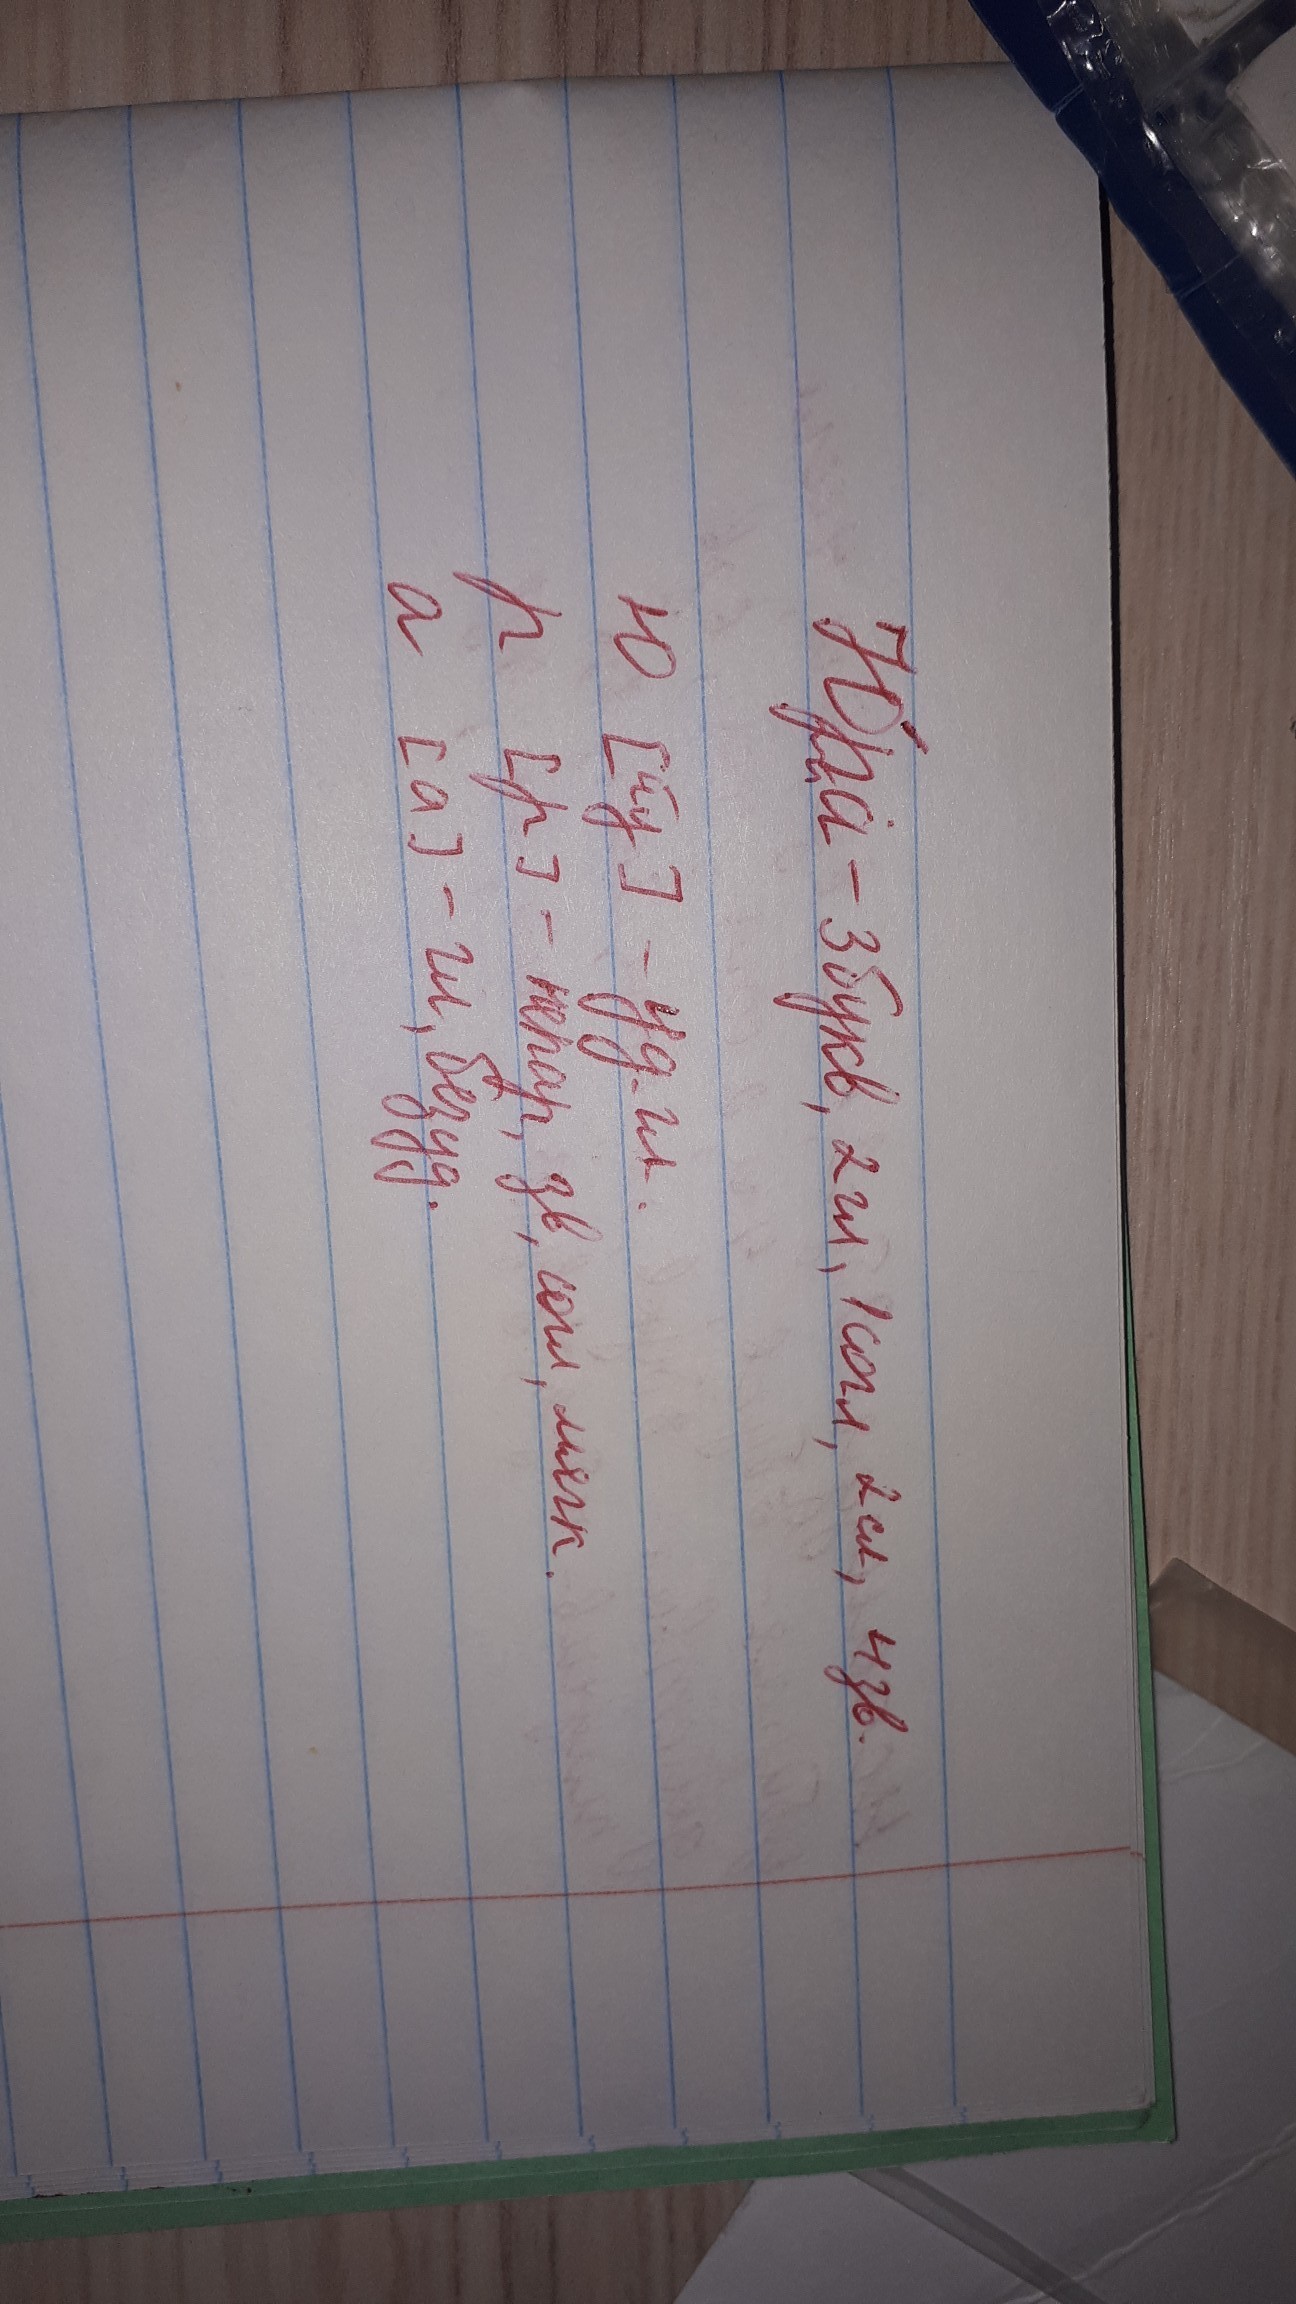 Юра - 3 букв, 2 гл, 1 согл, 2 сл, 4 зв.
ю [йу] - уд. гл.
р [р] - непар, зв, согл, мягк.
а [а] - гл, безуд.